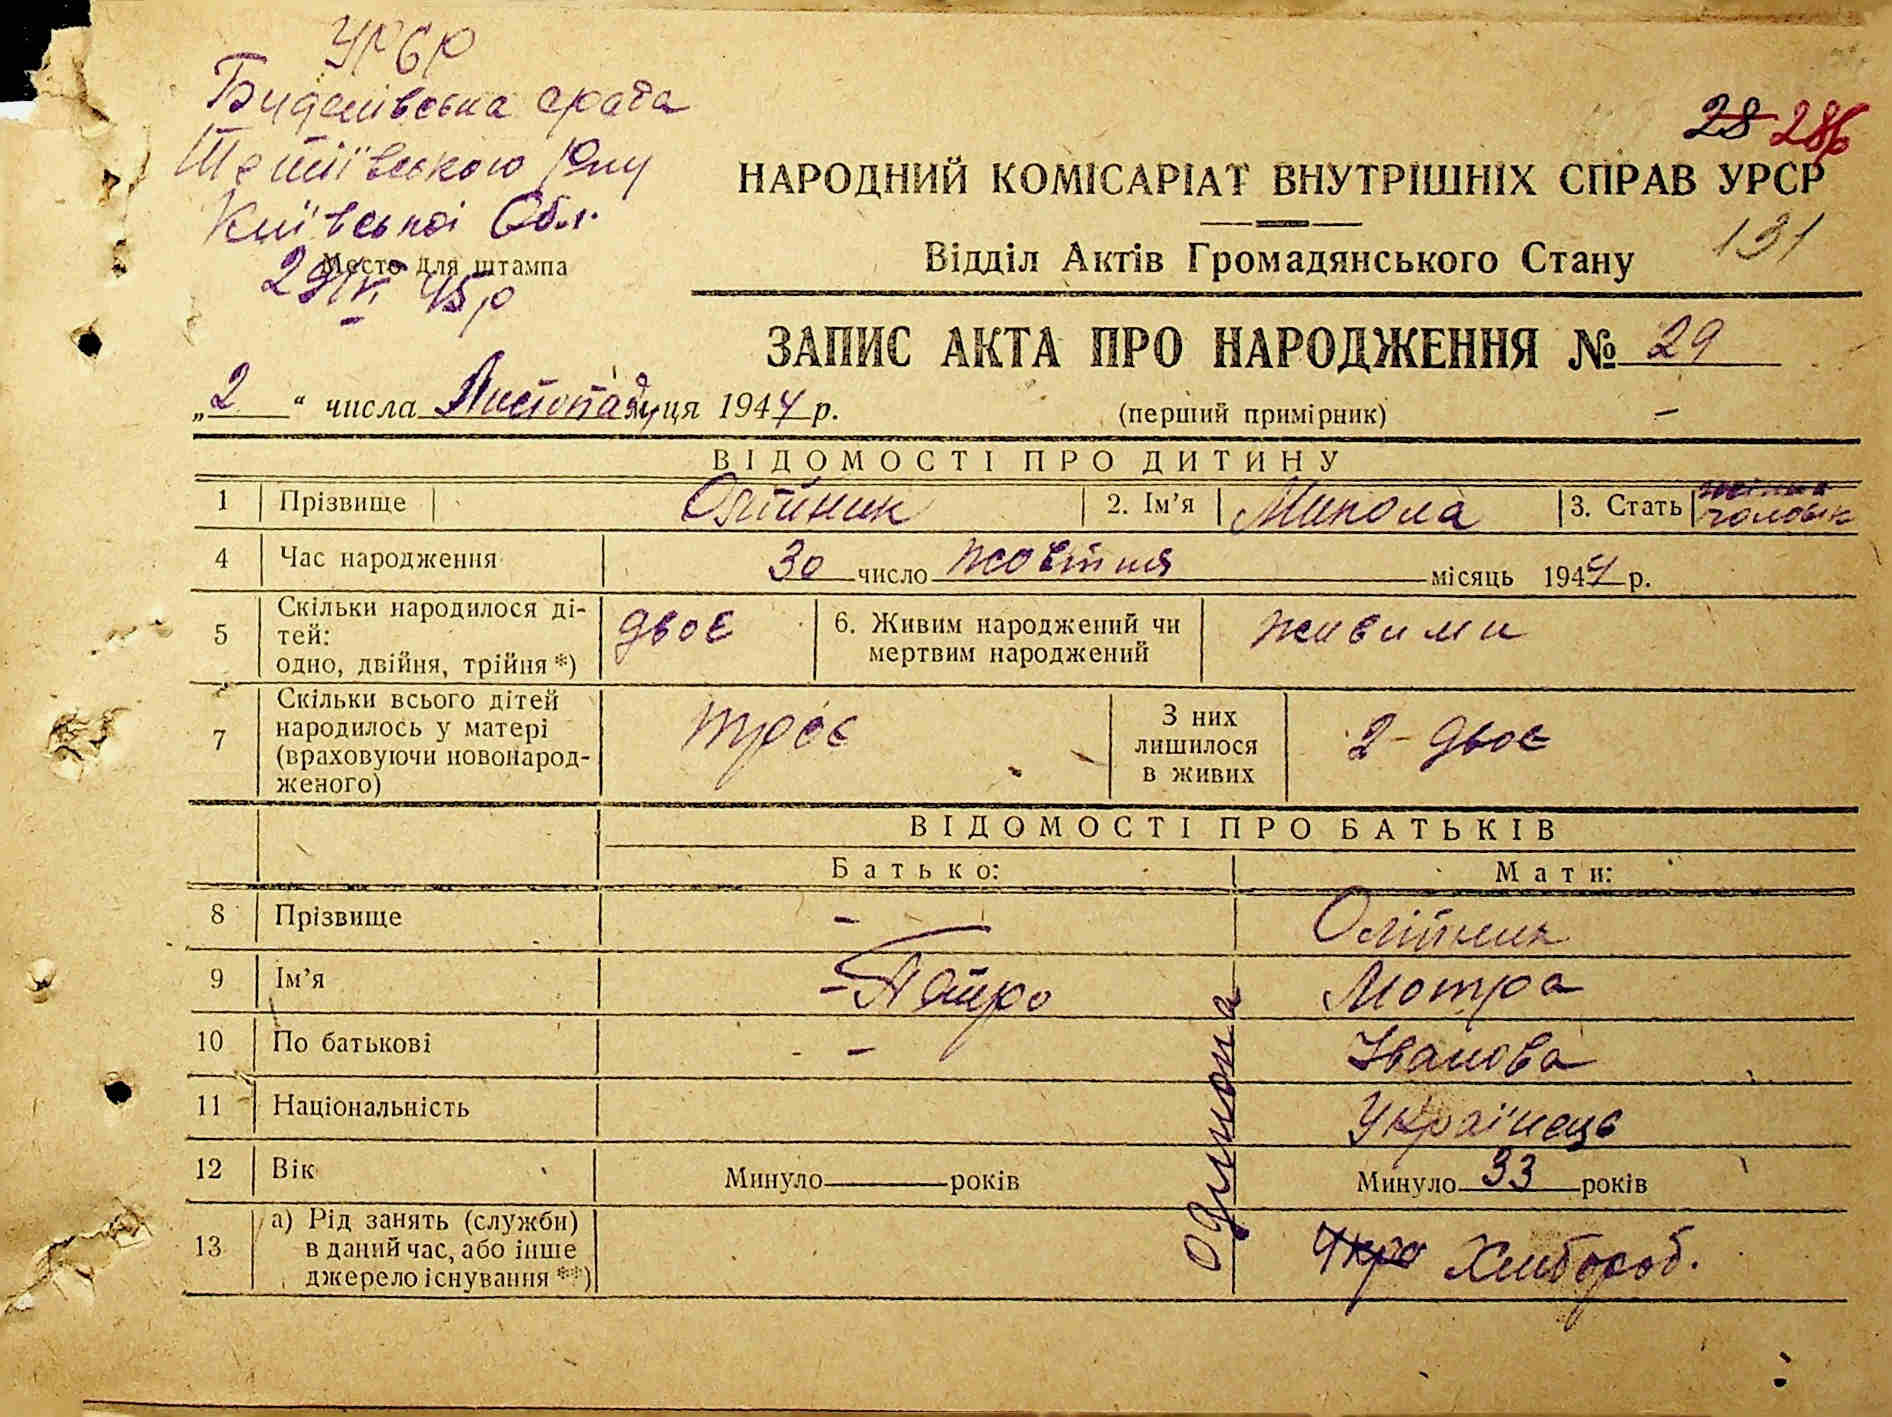 УРСР
срада
Тетіївського р-ну
Київської Обл.
Место для штампа
29/VI 45р
28 286
НАРОДНИЙ КОМІСАРІАТ ВНУТРІШНІХ СПРАВ УРСР
131
Відділ Актів Громадянського Стану
ЗАПИС АКТА ПРО НАРОДЖЕННЯ № 29
„2“ числа Листопад м-ця 1944 р.
(перший примірник) –
ВІДОМОСТІ ПРО ДИТИНУ
1 Прізвище Олійник 2. Ім’я Микола 3. Стать жіноча чоловік
4 Час народження 30 число жовтня місяць 1944 р.
5 Скільки народилося ді-
тей:
одно, двійня, трійня *) двоє
6. Живим народжений чи
мертвим народжений живими
7 Скільки всього дітей
народилось у матері
(враховуючи новонарод-
женого) троє
З них
лишилося
в живих 2 – двоє
ВІДОМОСТІ ПРО БАТЬКІВ
Батько: Мати:
8 Прізвище – Олійник
9 Ім’я – Петро Мотра
10 По батькові – Іванова
11 Національність Українець
12 Вік Минуло років Минуло 33 років
13 а) Рід занять (служби)
в даний час, або інше
джерело існування **) Укра Хлібороб.
одинока